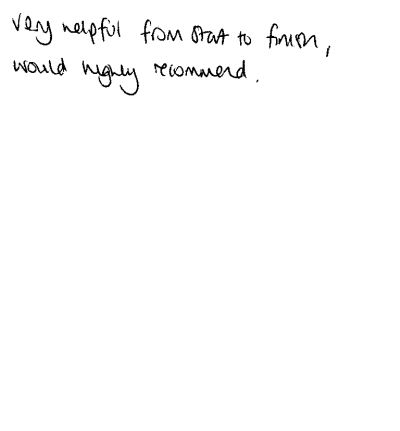 very helpful from start to finish,
would highly recommend.